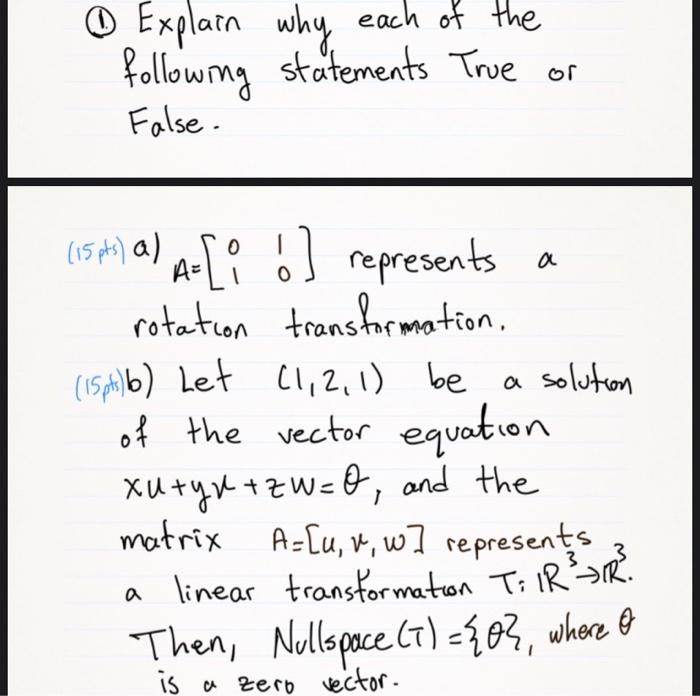 ① Explain why each of the
following statements True or
False.
(15 pts) a) A=[0 1
1 0] represents a
rotation transformation.
(15 pts) b) Let (1,2,1) be a solution
of the vector equation
xu+yv+zw=θ, and the
matrix A=[u,v,w] represents
a linear transformation T: ℝ³→ℝ³.
Then, Nullspace(T)={θ}, where θ
is a zero vector.